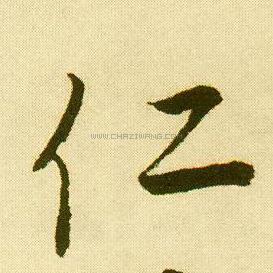 仁
WWW.CHAZIWANG.COM